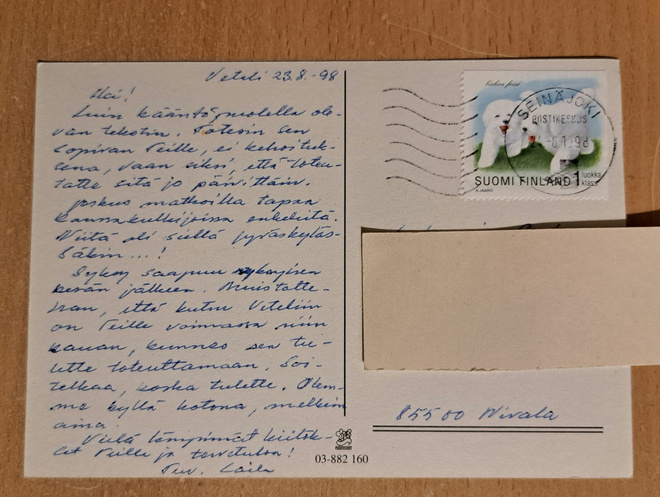 Veteli 23.8.-98
Hei!
Luin kääntöpuolella ole-
van tekstin. Totesin sen
sopivan Teille, ei kehoituk-
sena, vaan siksi, että toteu-
tatte sitä jo päivittäin.
Joskus matkoilla tapaa
kanssakulkijoissa enkeleitä.
Niitä oli siellä Jyväskyläs-
säkin...!
Syksy saapuu syksyisen
kesän jälkeen. Muistatte-
han, että kutsu Veteliin
on Teille voimassa niin
kauan, kunnes sen tu-
lette toteuttamaan. Soi-
telkaa, koska tulette. Olem-
me kyllä kotona, melkein
aina.
Vielä lämpimät kiitok-
set Teille ja tervetuloa!
Terv. Laila
SEINÄJOKI
POSTIKESKUS
SUOMI FINLAND 1 luokka
klass
85500 Nivala
03-882 160